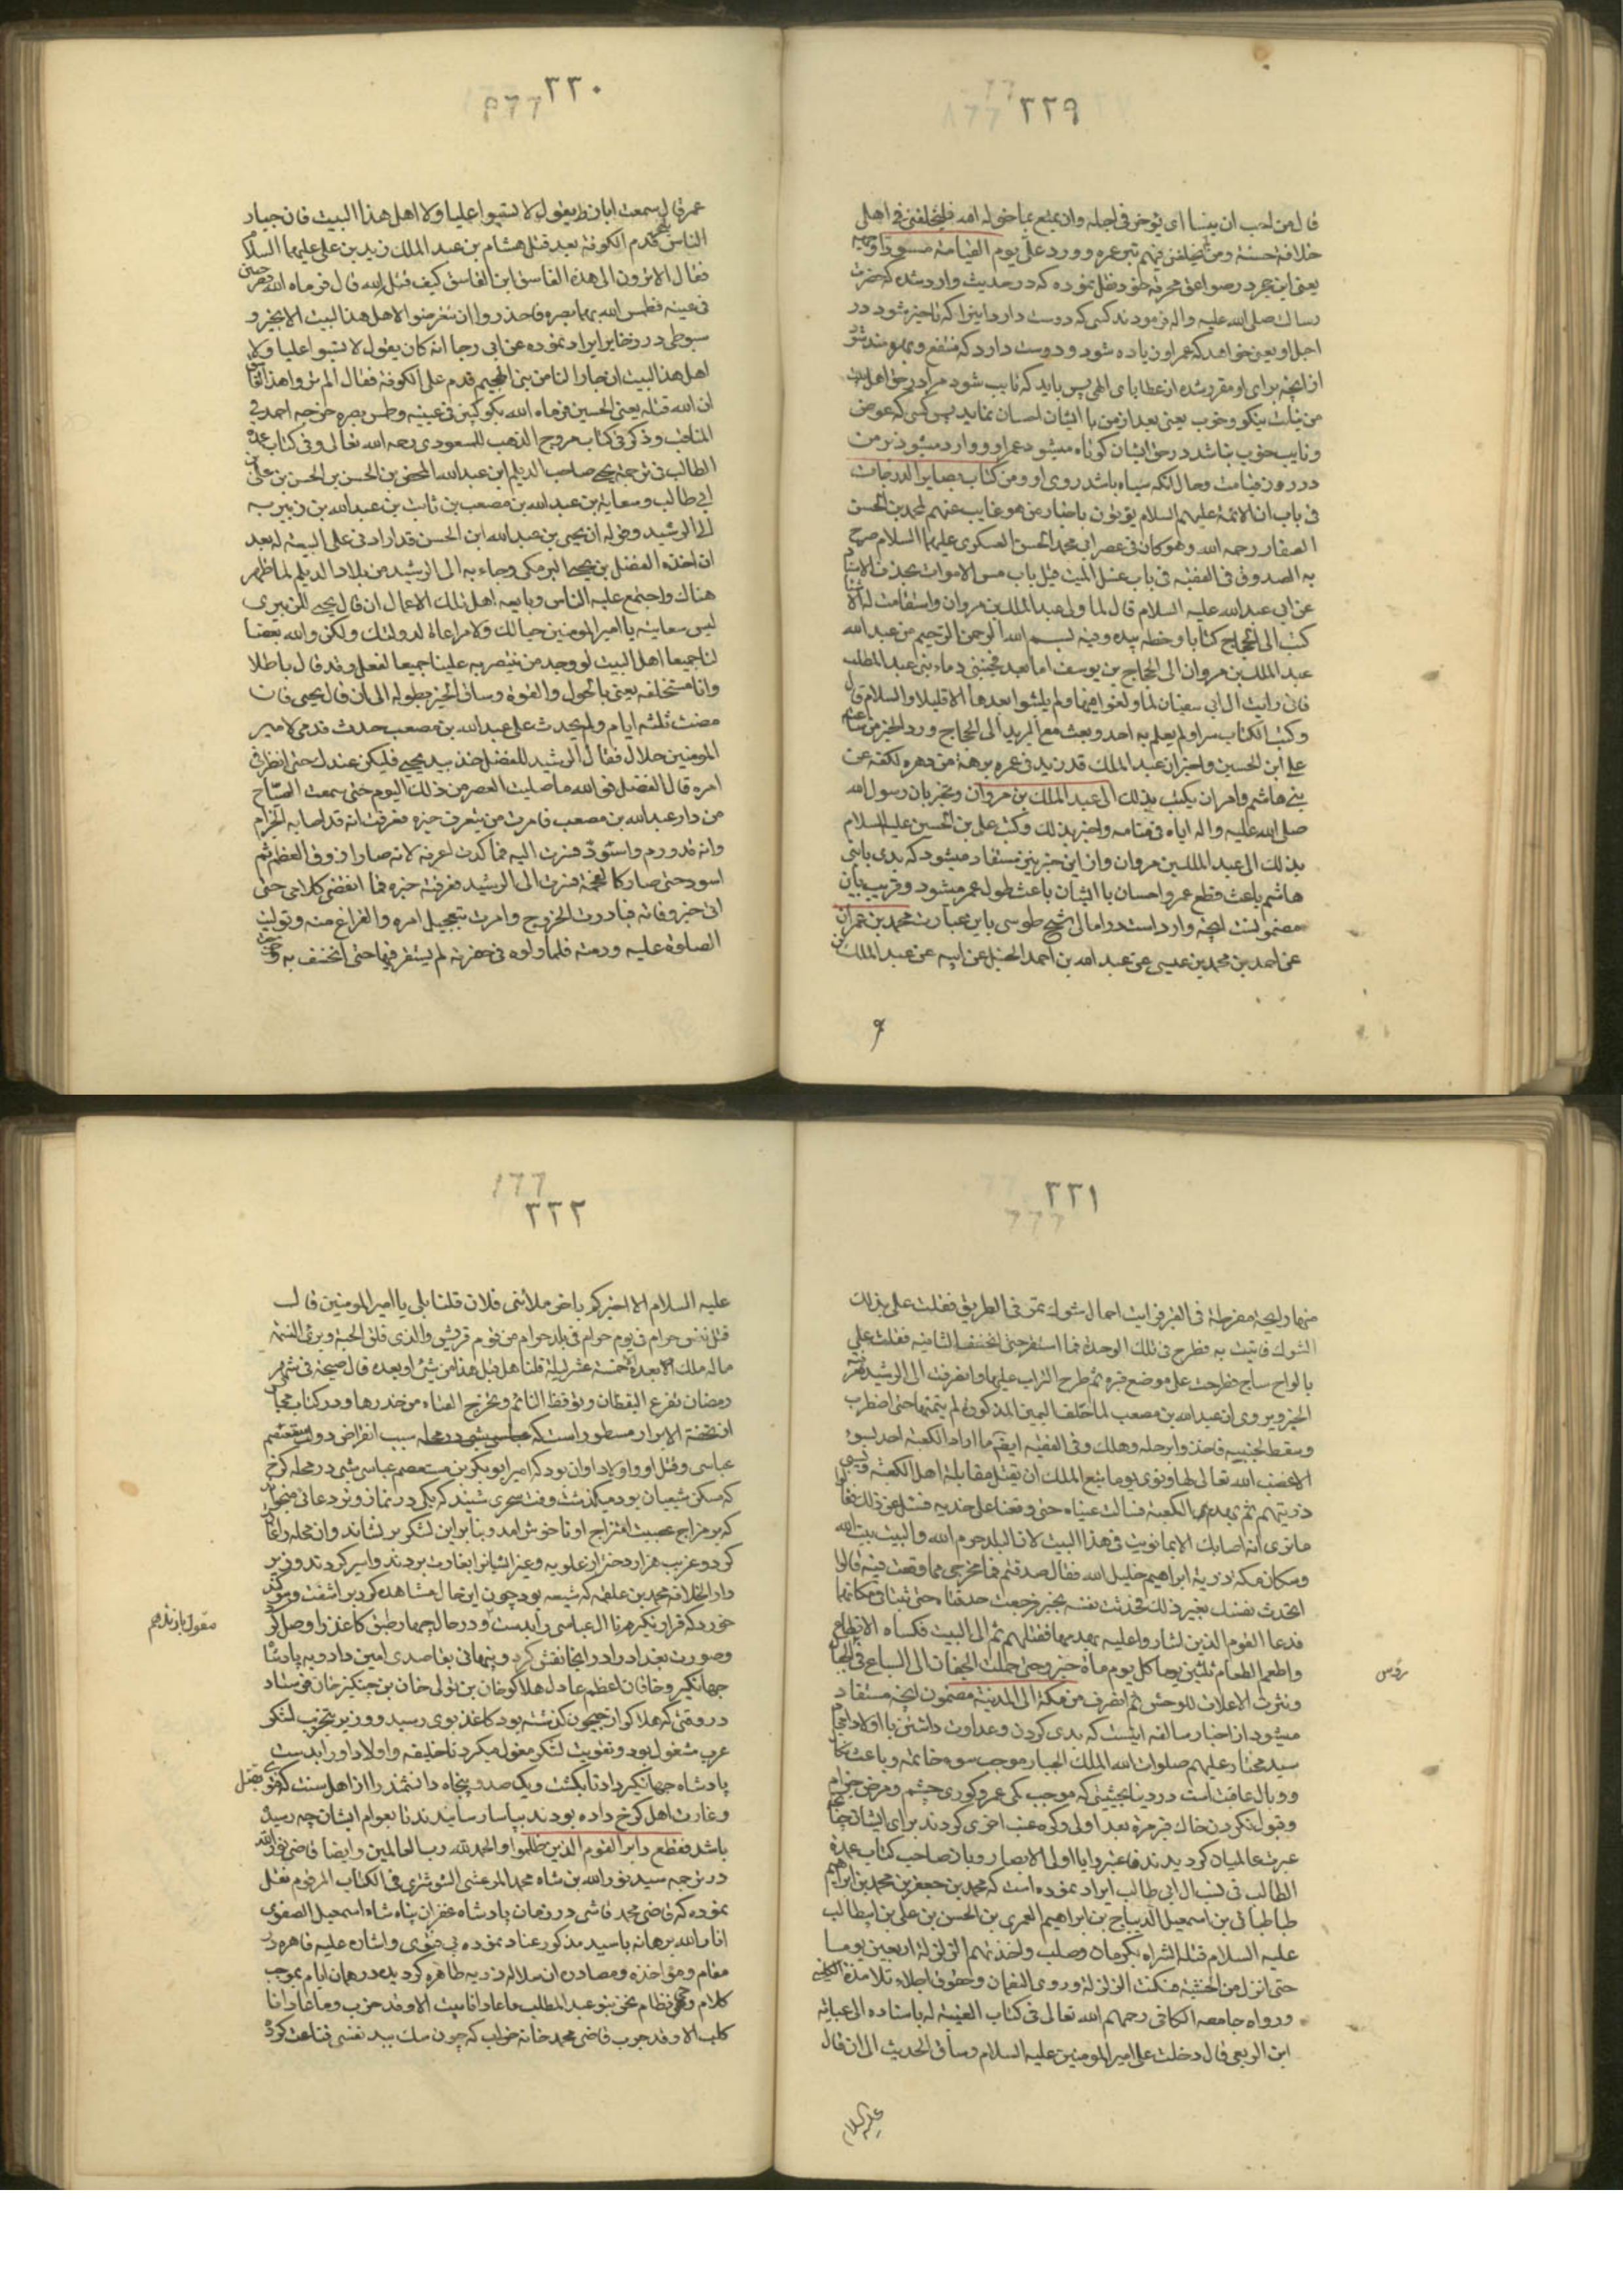 ٢٢٩
قال من احب ان ينسأ اى يؤخر فى اجله وان يمتع بما خوله الله فليخلفنى فى اهلى
خلافة حسنة ومن لم يخلفنى فيهم بتر عمره وورد على يوم القيامة مسودا وجهه
يعنى ابن حجر در صواعق محرقه خود نقل نموده كه در حديث وارد شده كه حضرت
رسالت صلى الله عليه واله فرمودند كسى كه دوست دارد اينرا كه تاخير شود در
اجل او يعنى خواهد كه عمر او زياده شود و دوست دارد كه منتفع و بهره مند شود
از انچه براى او مقرر شده از عطاياى الهى پس بايد كه نايب شود مرا در حق اهل بيت
من نيابت نيكو و خوب يعنى بعد از من با ايشان احسان نمايد پس كسى كه عوض
و نايب خوب نباشد در حق ايشان كوتاه ميشود عمر او و وارد ميشود بر من
در روز قيامت و حال آنكه سياه باشد روى او ومن كتاب بصاير الدرجات
فى باب ان الائمة عليهم السلام يخبرون باخبار من هو غايب عنهم لمحمد بن الحسن
الصفار رحمه الله وهو كان فى عصر ابى محمد الحسن العسكرى عليهما السلام صرح
به الصدوق فى الفقيه فى باب غسل الميت قبل باب مس الاموات بحذف الاسناد
عن ابى عبد الله عليه السلام قال لما ولى عبد الملك بن مروان واستقامت له الاشياء
كتب الى الحجاج كتابا وخطه بيده وفيه بسم الله الرحمن الرحيم من عبد الله
عبد الملك بن مروان الى الحجاج بن يوسف اما بعد فجنبنى دماء بنى عبد المطلب
فانى رايت ال ابى سفيان لما ولغوا فيها لم يلبثوا بعدها الا قليلا والسلام قال
وكتب الكتاب سرا ولم يعلم به احد وبعث مع البريد الى الحجاج وورد الخبر من ساعته
على ابن الحسين واخبر ان عبد الملك قد زيد فى عمره برهة من دهره لكفه عن
بنى هاشم وامر ان يكتب بذلك الى عبد الملك بن مروان ويخبر بان رسول الله
صلى الله عليه واله اتاه فى منامه واخبر بذلك وكتب على بن الحسين عليه السلام
بذلك الى عبد الملك بن مروان و از اين خبر نيز مستفاد ميشود كه بدى با بنى
هاشم باعث قطع عمر و احسان با ايشان باعث طول عمر ميشود و قريب باين
مضمونست انچه وارد است در امالى شيخ طوسى باين عبارت محمد بن عمران
عن احمد بن محمد بن عيسى عن عبد الله بن احمد الحنبل عن ابيه عن عبد الملك بن
٢٣٠
عمر قال سمعت ابا رجا يقول لا تسبوا عليا ولا اهل هذا البيت فان جبار
الناس قدم الكوفة بعد قتل هشام بن عبد الملك زيد بن على عليهما السلام
فقال الا ترون الى هذا الفاسق ابن الفاسق كيف قتله الله قال فرماه الله بقرحتين
فى عينيه فطمس الله بهما بصره فاحذروا ان تتعرضوا لاهل هذا البيت الا بخير و
سيوطى در ذخاير ايراد نموده عن ابى رجا انه كان يقول لا تسبوا عليا ولا
اهل هذا البيت ان جارا لنا من بنى الهجيم قدم على الكوفة فقال الم تروا هذا الفاسق
ان الله قتله يعنى الحسين فرماه الله بكوكبين فى عينيه وطمس بصره خرجه احمد فى
المناقب وذكر فى كتاب مروج الذهب للمسعودى رحمه الله تعالى وفى كتاب عمدة
الطالب فى ترجمة يحيى صاحب الديلم ابن عبد الله المحض بن الحسن بن الحسن بن على بن
ابى طالب وسعاية بن عبد الله بن مصعب بن ثابت بن عبد الله بن زبير به
الى الرشيد وقوله ان يحيى بن عبد الله ابن الحسن قد ارادنى على البيعة له بعد
ان اخذه الفضل بن يحيى البرمكى وجاء به الى الرشيد من بلاد الديلم لما ظهر
هناك واجتمع عليه الناس وبايعه اهل تلك الاعمال ان قال يحيى للزبيرى
ليس سعايته يا امير المومنين حبا لك ولا مراعاة لدولتك ولكن والله بغضا
لنا جميعا اهل البيت لو وجد من ينتصر به علينا جميعا لفعل وقد قال باطلا
وانا مستحلفه يعنى بالحول والقوة وساق الخبر بطوله الى ان قال يحيى فان
مضت ثلثة ايام ولم يحدث على عبد الله بن مصعب حدث فدمى لامير
المومنين حلال فقال الرشيد للفضل خذ بيد يحيى فليكن عندك حتى انظر فى
امره قال الفضل فو الله ما صليت العصر من ذلك اليوم حتى سمعت الصياح
من دار عبد الله بن مصعب فامرت من يتعرف خبره فعرفت انه قد اصابه الجذام
وانه قد ورم واسود فصرت اليه فما كدت اعرفه لانه صار كالزق العظيم ثم
اسود حتى صار كالفحمة فصرت الى الرشيد فعرفته خبره فما انقضى كلامى حتى
اتى خبر وفاته فبادرت الخروج وامرت بتعجيل امره والفراغ منه وتوليت
الصلوة عليه ودفنه فلما دلوه فى حفرته لم يستقر فيها حتى انخسف به وخرجت
٢٣١
منها رايحة مفرطة فى القبر فرايت احمال شوك تمر فى الطريق فقلت على بذلك
الشوك فاتيت به فطرح فى تلك الوحدة فما استقر حتى انخسف الثانية فقلت على
بالواح ساج فطرحت على موضع قبره ثم طرح التراب عليها وانصرفت الى الرشيد فعرفته
الخبر ويروى ان عبد الله بن مصعب لما حلف اليمين المذكورة لم يتمها حتى اضطرب
وسقط لجنبه فاخذوا برجله وهلك وفى الفقيه ايضا ما اراد الكعبة احد بسوء
الا غضب الله تعالى لها ونوى يوما تبع الملك ان يقتل مقاتلة اهل الكعبة ويسبى
ذريتهم ثم يهدم الكعبة فسالت عيناه حتى وقعتا على خديه فسئل عن ذلك فقالوا
ما نرى انه اصابك الا بما نويت فى هذا البيت لان البلد حرم الله والبيت بيت الله
وسكان مكة ذرية ابراهيم خليل الله فقال صدقتم فما مخرجى مما وقعت فيه قالوا
تحدث نفسك بغير ذلك فحدثت نفسه بخير فرجعت حدقتاه حتى ثبتتا فى مكانهما
فدعا القوم الذين اشاروا عليه بهدمها فقتلهم ثم اتى البيت فكساه الانطاع
واطعم الطعام ثلثين يوما كل يوم مأة جزور حتى حملت الجفان الى السباع فى الجبال
ونثرت الاعلاف للوحش ثم انصرف من مكة الى المدينة مضمون انچه مستفاد
ميشود از اخبار سالفه اينست كه بدى كردن و عداوت داشتن با اولاد امجاد
سيد مختار عليهم صلوات الله الملك الجبار موجب سوء خاتمه و باعث نكال
و وبال عاقبت است در دنيا بحيثيتى كه موجب كمى عمر و كورى چشم و مرض جذام
و قبول نكردن خاك قبر مرة بعد اولى وكرة غب اخرى كردند براى ايشان چنانچه
عبرت عالميان كرديدند فاعتبروا يا اولى الابصار و باز صاحب كتاب عمدة
الطالب فى نسب ال ابى طالب ايراد نموده است كه محمد بن جعفر بن محمد بن ابراهيم
طباطبا بن اسمعيل الديباج بن ابراهيم الغمر بن الحسن بن على بن ابيطالب
عليه السلام قتله الشراه بكرمان وصلب واخذتهم الزلزلة اربعين يوما
حتى انزل من الخشبة فسكنت الزلزلة وروى النعمان وهو من اجلاء تلامذة الكلينى
ورواه جامعه الكافى رحمهم الله تعالى فى كتاب الغيبة له باسناده الى عباية
ابن الربعى قال دخلت على امير المومنين عليه السلام وساق الحديث الى ان قال
عليه السلام
٢٣٢
عليه السلام الا اخبركم باخر ملك بنى فلان قلنا بلى يا امير المومنين قال
قتل نفس حرام فى يوم حرام فى بلد حرام من قوم قريش والذى فلق الحبة وبرئ النسمة
ما له ملك بعده خمسة عشر ليلة قلنا هل قبل هذا من شئ او بعده قال صيحة فى شهر
رمضان تفزع اليقظان وتوقظ النائم وتخرج الفتاة من خدرها و در كتاب
تحفة الابرار مسطور است كه سبب انقراض دولت مستعصم
عباسى و قتل او و اولاد او ان بود كه امير ابو بكر بن مستعصم عباسى شبى در محله كرخ
كه مسكن شيعيان بود ميكذشت وقت سحرى شنيد كه يكى در نماز وتر دعائى ميخواند
كه بر مزاج عصبيت امتزاج او ناخوش امد و بنابراين لشكر بر نشاند و ان محله را غارت
كرد و غريب هزار دختر از علويه و غير ايشانرا بغارت بردند و اسير كردند وزير
دار الخلافه محمد بن علقمه كه شيعه بود چون اين حال مشاهده كرد بر اشفت و سوكند
خورد كه قرار نكيرم تا ال عباسى را بدست و در حال چهار طبق كاغذ را وصل كرد
و صورت بغداد را در انجا نقش كرد و پنهانى بقاصدى امين داد و به پادشاه
جهانكير و خاقان اعظم عادل هلاكو خان بن تولى خان بن چنكيز خان فرستاد
در وقتى كه هلاكو از جيحون كذشته بود كاغذ بوى رسيد و وزير بتخريب لشكر
عرب مشغول بود و تقويت لشكر مغول ميكرد تا خليفه و اولاد او را بدست
پادشاه جهانكير داد تا بكشت و يك صد و پنجاه دانشمند را از اهل سنت كه فتوى بقتل
و غارت اهل كرخ داده بودند بياسا رسانيدند تا بعوام ايشان چه رسيده
باشد فقطع دابر القوم الذين ظلموا والحمد لله رب العالمين و ايضا قاضى نور الله
در ترجمه سيد نور الله بن شاه محمد المرعشى الشوشترى فى الكتاب المرقوم نقل
نموده كه قاضى محمد كاشى در زمان پادشاه غفران پناه شاه اسمعيل الصفوى
انار الله برهانه با سيد مذكور عناد نموده
مقام ومؤاخذه و مصادره ان سلاله ذريه طاهره كرديده در همان ايام بموجب
كلام نظام نحن بنو عبد المطلب ما عادانا بيت الا وقد خرب وما عادانا
كلب الا وقد جرب قاضى محمد خانه خراب كه چون سك